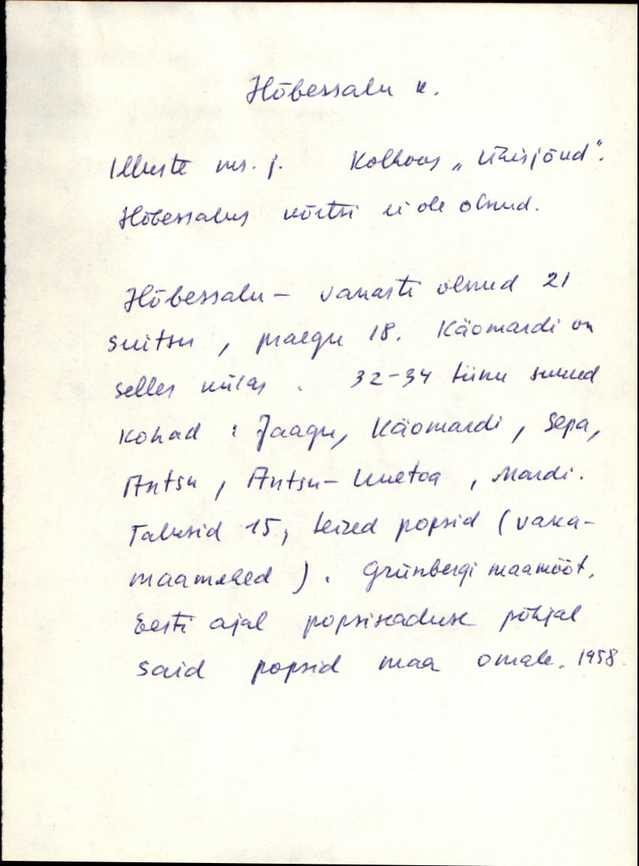 Hõbessalu k.
Illuste ms. j. Kolhoos „Ühisjõud".
Hõbessalus kõrtsi ei ole olnud.
Hõbessalu – vanasti olnud 21
suitsu, praegu 18. Käomardi on
selles külas. 32-34 tiinu suured
kohad: Jaagu, Käomardi, Sepa,
Antsu, Antsu-Uuetoa, Mardi.
Talusid 15, teised popsid (vaka-
maamehed). Grünbergi maamõõt.
Eesti ajal popsiseaduse põhjal
said popsid maa omale. 1958